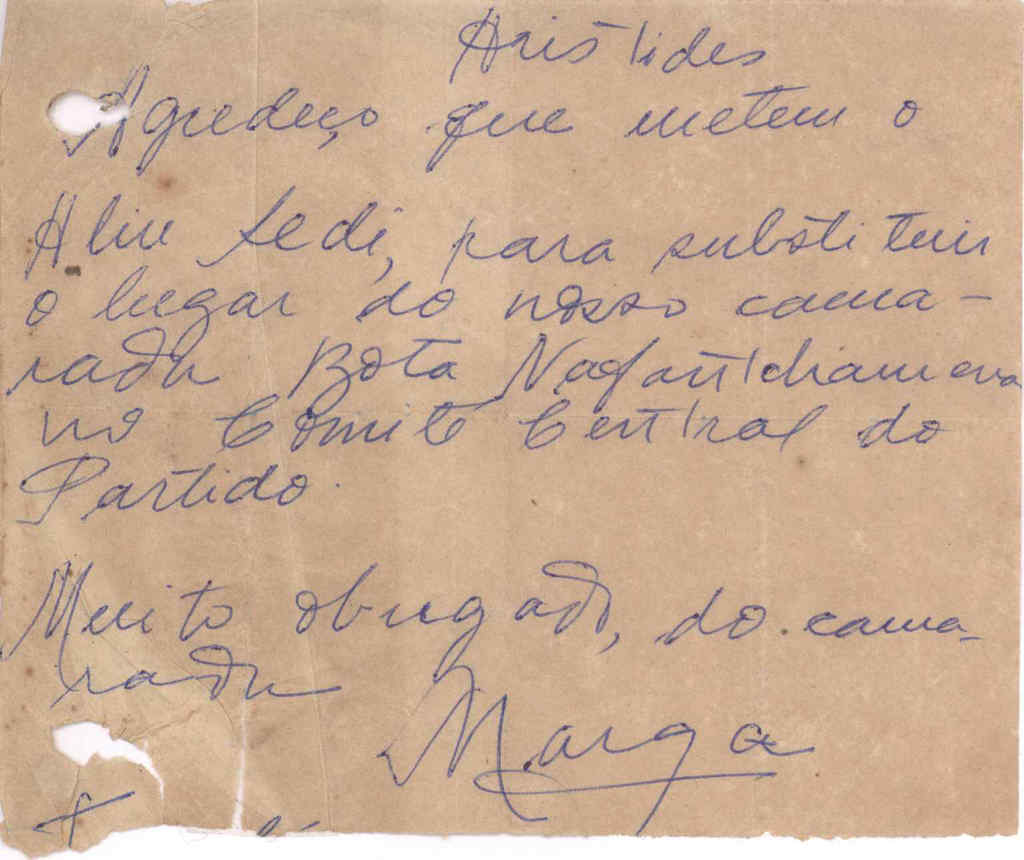 Aristides
Agredeço que metem o
Aliu Sedi, para substituir
o lugar do nosso cama-
rada Bota Nafantchamna
no Comite Central do
Partido.
Muito obrigado, do cama-
rada
Marga